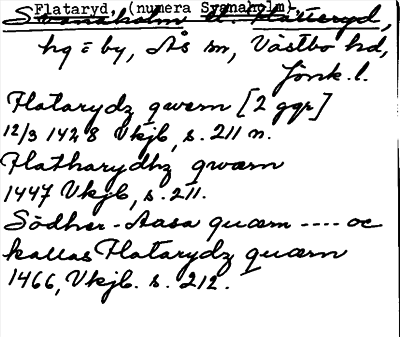 Flataryd, (numera Svanaholm).
Svanaholm el. Flatteryd,
hg = by, Ås sn, Västbo hd,
Jönk. l.
Flatarydz qwern [2 ggr]
12/3 1428 Vkjb, s. 211 n.
Flatharydhz qwærn
1447 Vkjb, s. 211.
Södher-Aasa quærn ---- oc
kallas Flatarydz quærn
1466, Vkjb. s. 212.